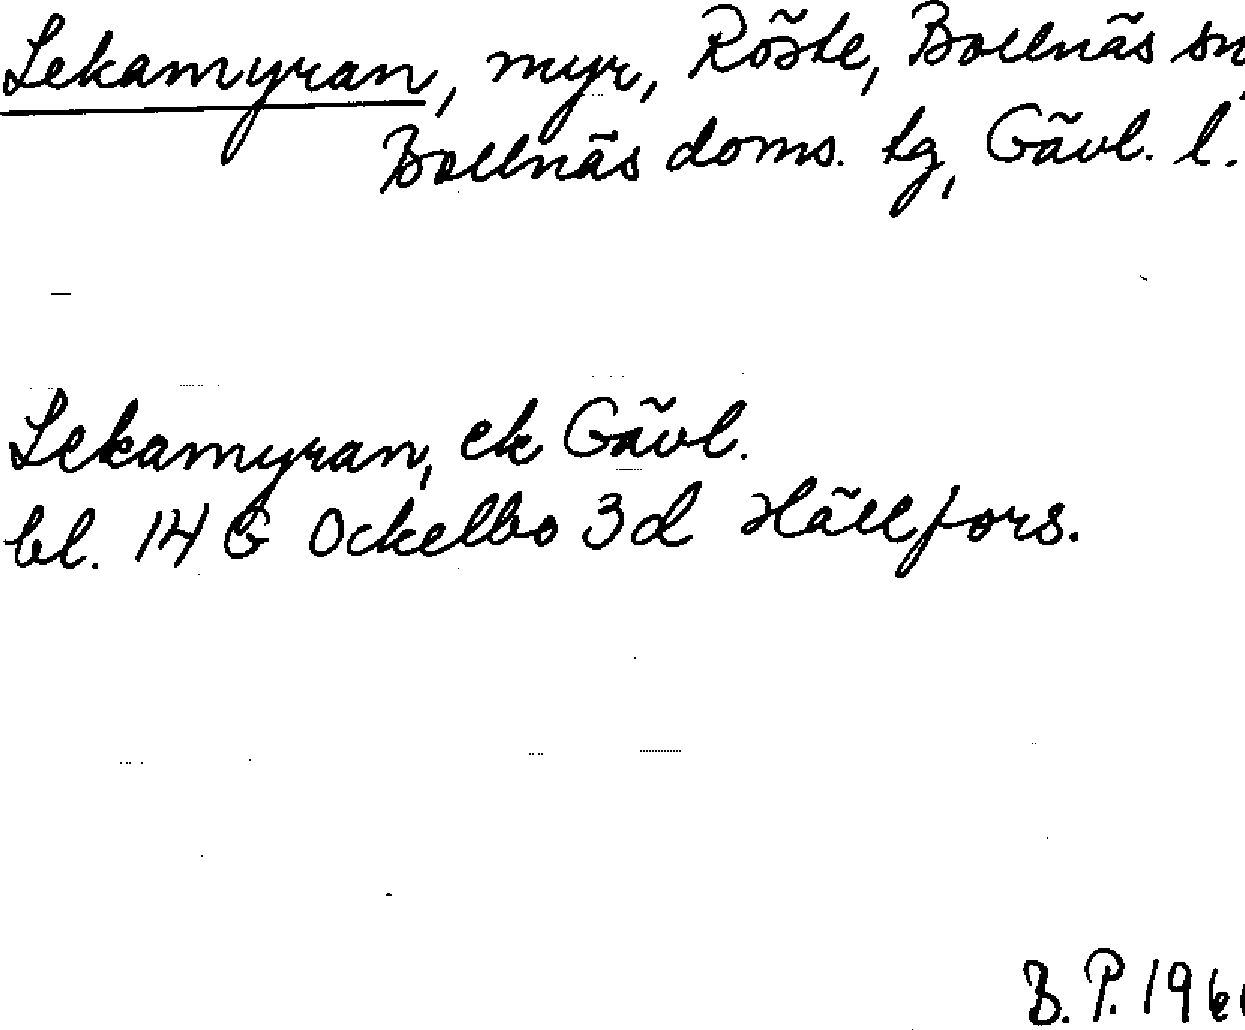 Lekamyran, myr, Röste, Bollnäs sn,
Bollnäs doms. tg, Gävl. l.
Lekamyran, ek Gävl.
bl. 14 G Ockelbo 3d Hällfors.
B. P. 196